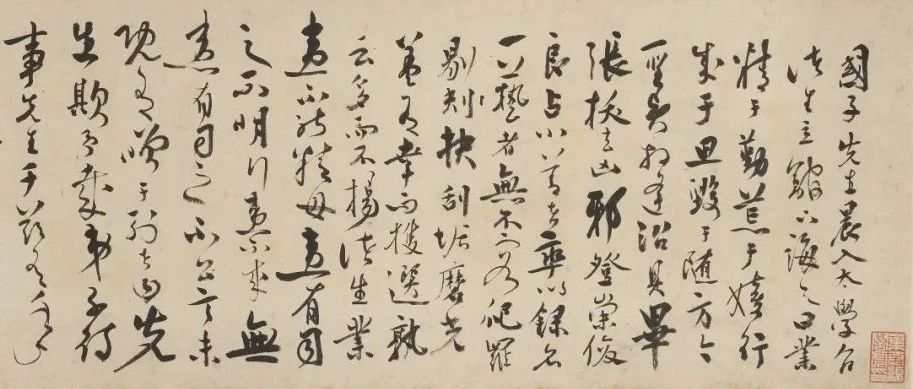 國子先生晨入太學召
諸生立館下誨之曰業
精于勤荒于嬉行
成于思毀于隨方今
聖賢相逢治具畢
張拔去凶邪登崇俊
良占小善者率以錄名
一藝者無不庸爬羅
剔抉刮垢磨光
蓋有幸而獲選孰
云多而不揚諸生業
患不能精毋患有司
之不明行患不成無
患有司之不公言未
既有于列者曰先
生欺予哉弟子待
事先生于茲有年